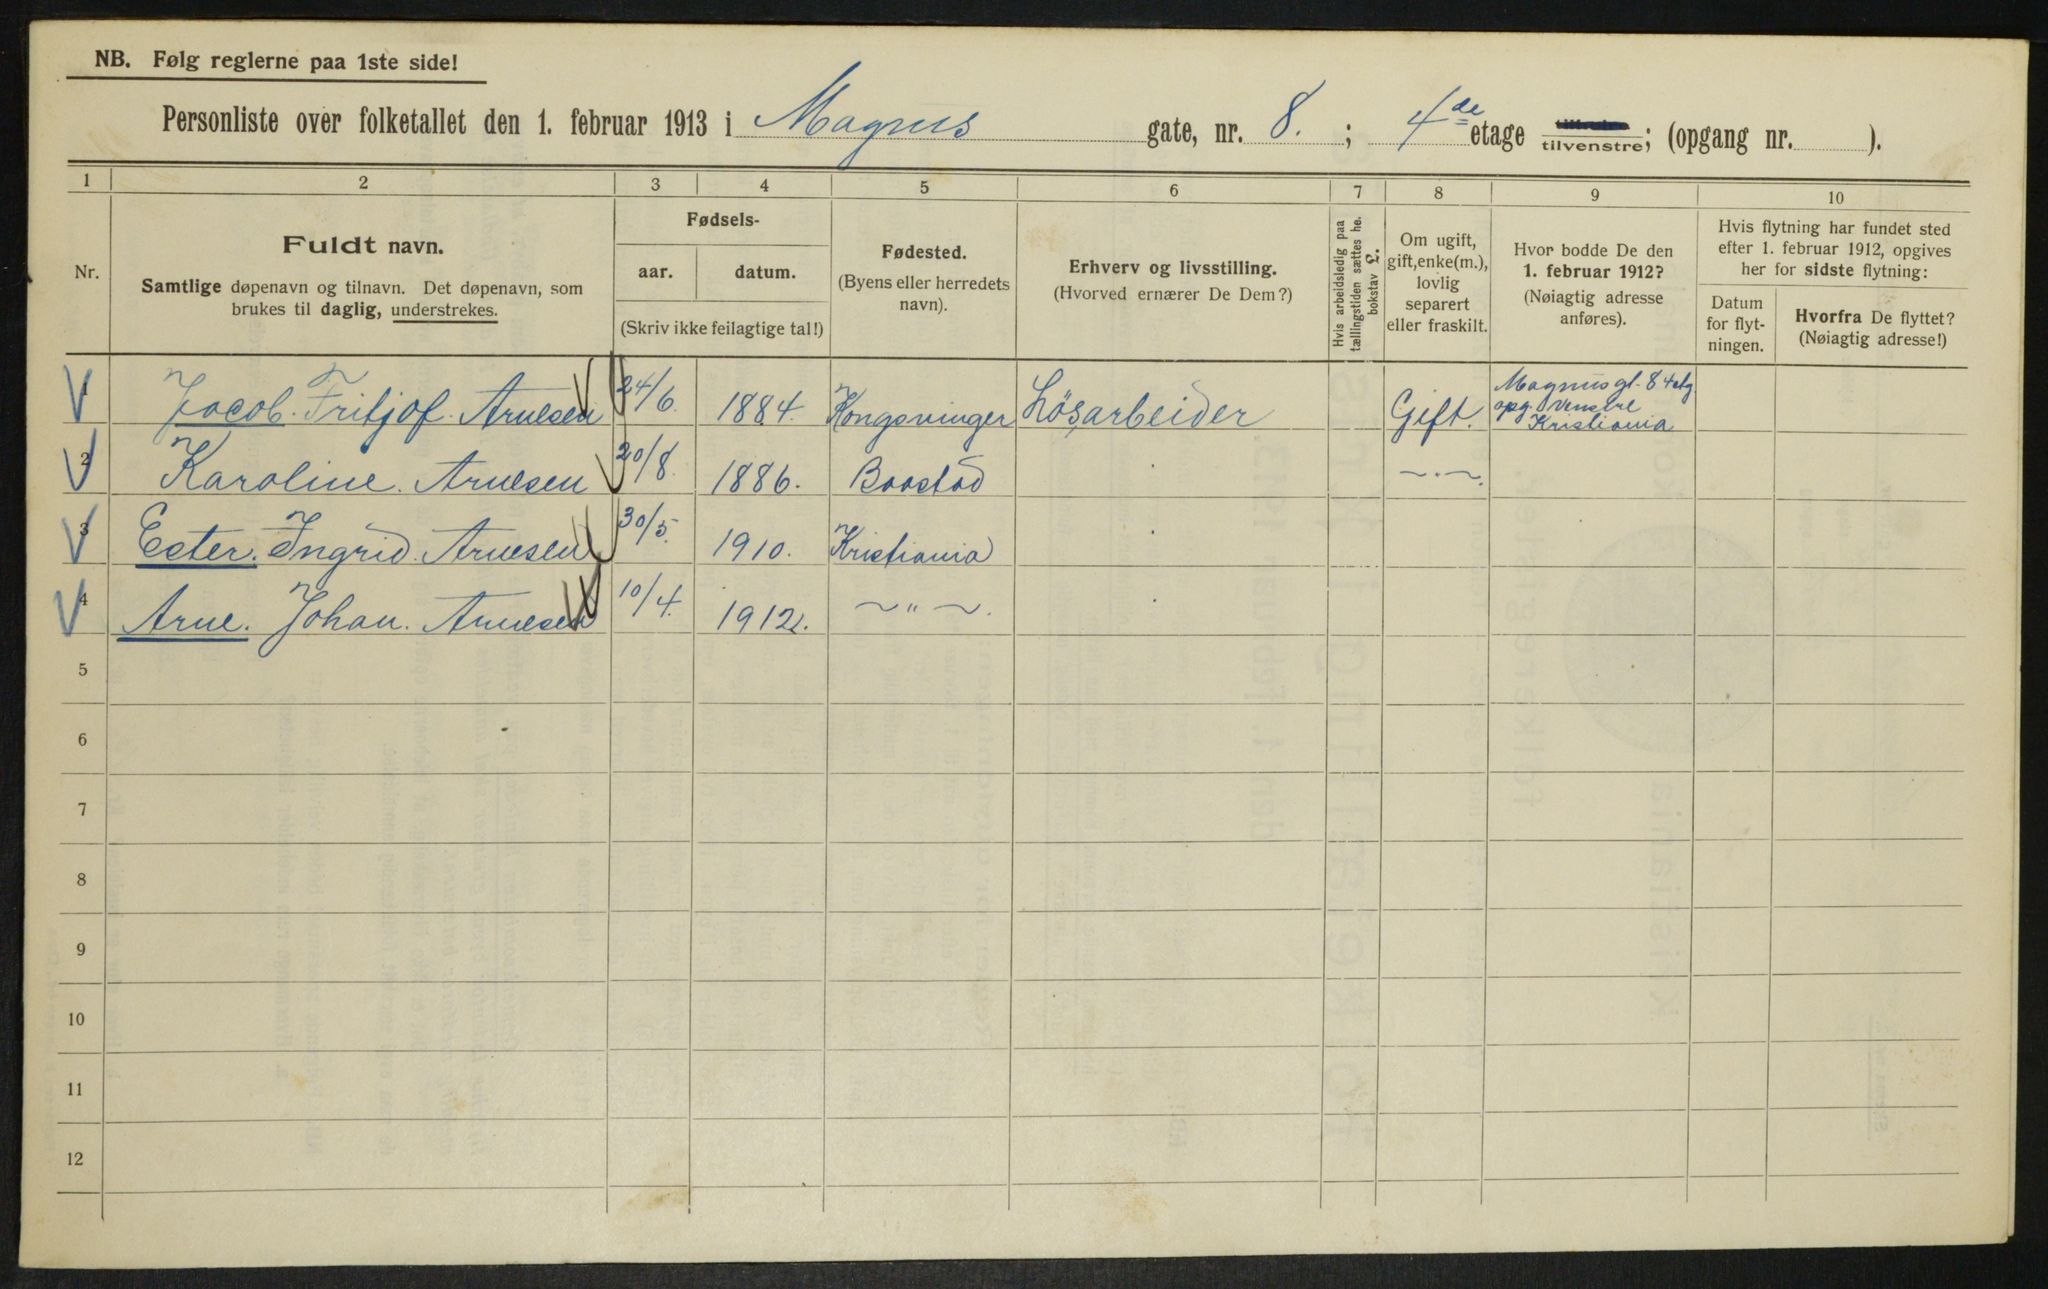 NB. Følg reglerne paa 1ste side!
Personliste over folketallet den 1. februar 1913 i Magnus gate, nr. 8. ; 4de etage tilvenstre; (opgang nr. ).
1 2 3 4 5 6 7 8 9 10
Nr.
Fuldt navn.
Samtlige døpenavn og tilnavn. Det døpenavn, som
brukes til daglig, understrekes.
Fødsels-
aar. datum.
(Skriv ikke feilagtige tal!)
Fødested.
(Byens eller herredets
navn).
Erhverv og livsstilling.
(Hvorved ernærer De Dem?)
Hvis arbeidsledig paa
tællingstiden sættes her
bokstav L.
Om ugift,
gift, enke(m.),
lovlig
separert
eller fraskilt.
Hvor bodde De den
1. februar 1912?
(Nøiagtig adresse
anføres).
Hvis flytning har fundet sted
efter 1. februar 1912, opgives
her for sidste flytning:
Datum
for flyt-
ningen.
Hvorfra De flyttet?
(Nøiagtig adresse!)
1 Jacob. Fritjof. Arnesen 24/6. 1884. Kongsvinger Løsarbeider Gift. Magnusgt. 8 4 etg.
opg. venstre
Kristiania
2 Karoline. Arnesen 20/8. 1886. Baastad —〃—.
3 Ester. Ingrid. Arnesen 30/5. 1910. Kristiania
4 Arne. Johan. Arnesen 10/4. 1912. —〃—.
5
6
7
8
9
10
11
12